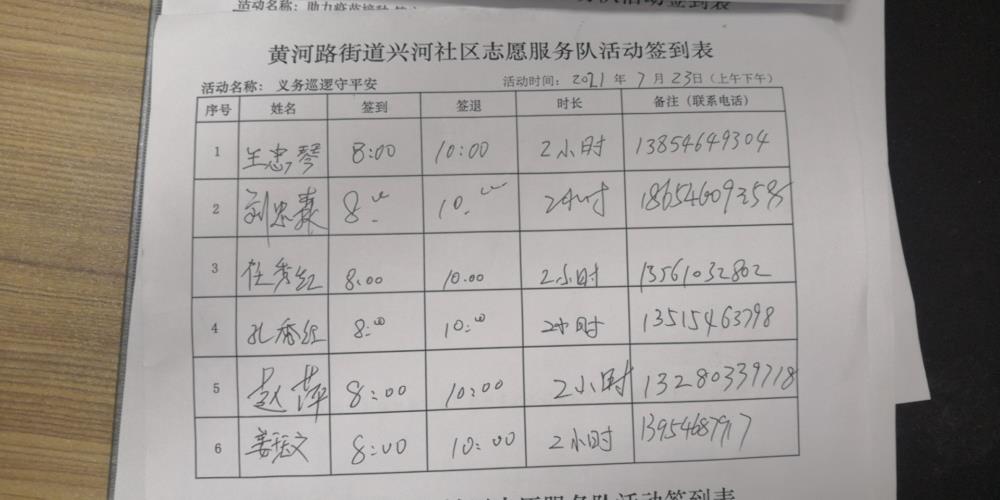 活动名称：助力疫苗接种
黄河路街道兴河社区志愿服务队活动签到表
活动名称： 义务巡逻守平安 活动时间：2021 年 7 月 23日（上午下午）
序号 姓名 签到 签退 时长 备注（联系电话）
1 王忠琴 8:00 10:00 2小时 13854649304
2 刘忠森 8:00 10:00 2小时 18654609359
3 任秀红 8:00 10.00 2小时 13561032802
4 孔香红 8:00 10:00 2小时 13515463798
5 赵萍 8:00 10:00 2小时 13280339718
6 8:00 10:00 2小时
志愿服务队活动签到表